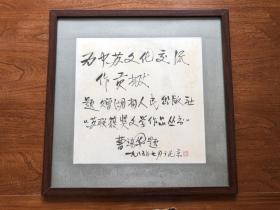 为中苏文化交流
作贡献
题赠湖南人民出版社
“苏联获奖文学作品丛书”
曹靖华题
一九八五年七月于北京